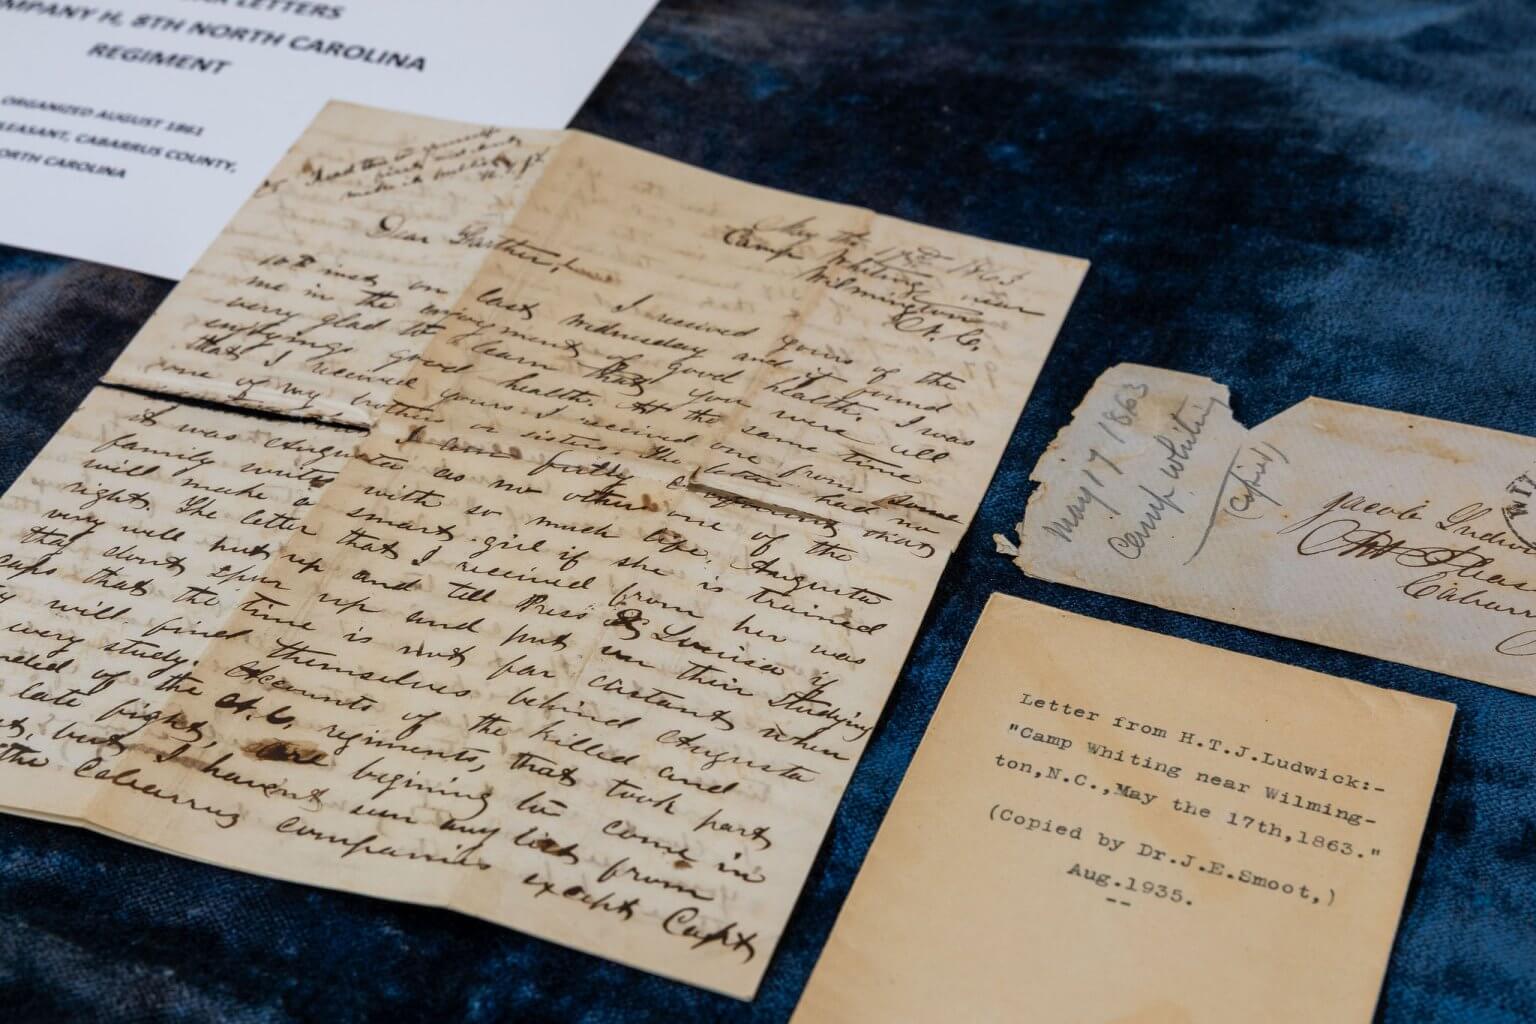 LETTERS
COMPANY H, 8TH NORTH CAROLINA
REGIMENT
ORGANIZED AUGUST 1861
PLEASANT, CABARRUS COUNTY,
NORTH CAROLINA
May the 17th 1863
Camp Whiting near
Wilmington
N. C.
Dear Farther,
I received yours of the
10th inst, on last Wednesday and it found
me in the enjoyment of good health. I was
very glad to learn that you were all
enjoying good health. At the same time
that I received yours I received one from some
one of my brothers or sisters, the letter had no
I am fully
it was Augusta as no other one of the
family writes with so much life. Augusta
will make a smart girl if she is trained
right. The letter that I received from her was
very well put up and tell Press & Louisa if
they dont spur up and put in their studying
caps that the time is not far distant when
will find themselves behind Augusta
every study. Accounts of the killed and
of the N.C. regiments, that took part
late fight, are begining to come in
but I havent seen any lists from
the Cabarrus companies except Capt
May 17 1863
Camp Whiting
(Copied)
Jacob
Cabarrus
Letter from H.T.J.Ludwick:-
"Camp Whiting near Wilming-
ton,N.C.,May the 17th,1863."
(Copied by Dr.J.E.Smoot,)
Aug.1935.
--